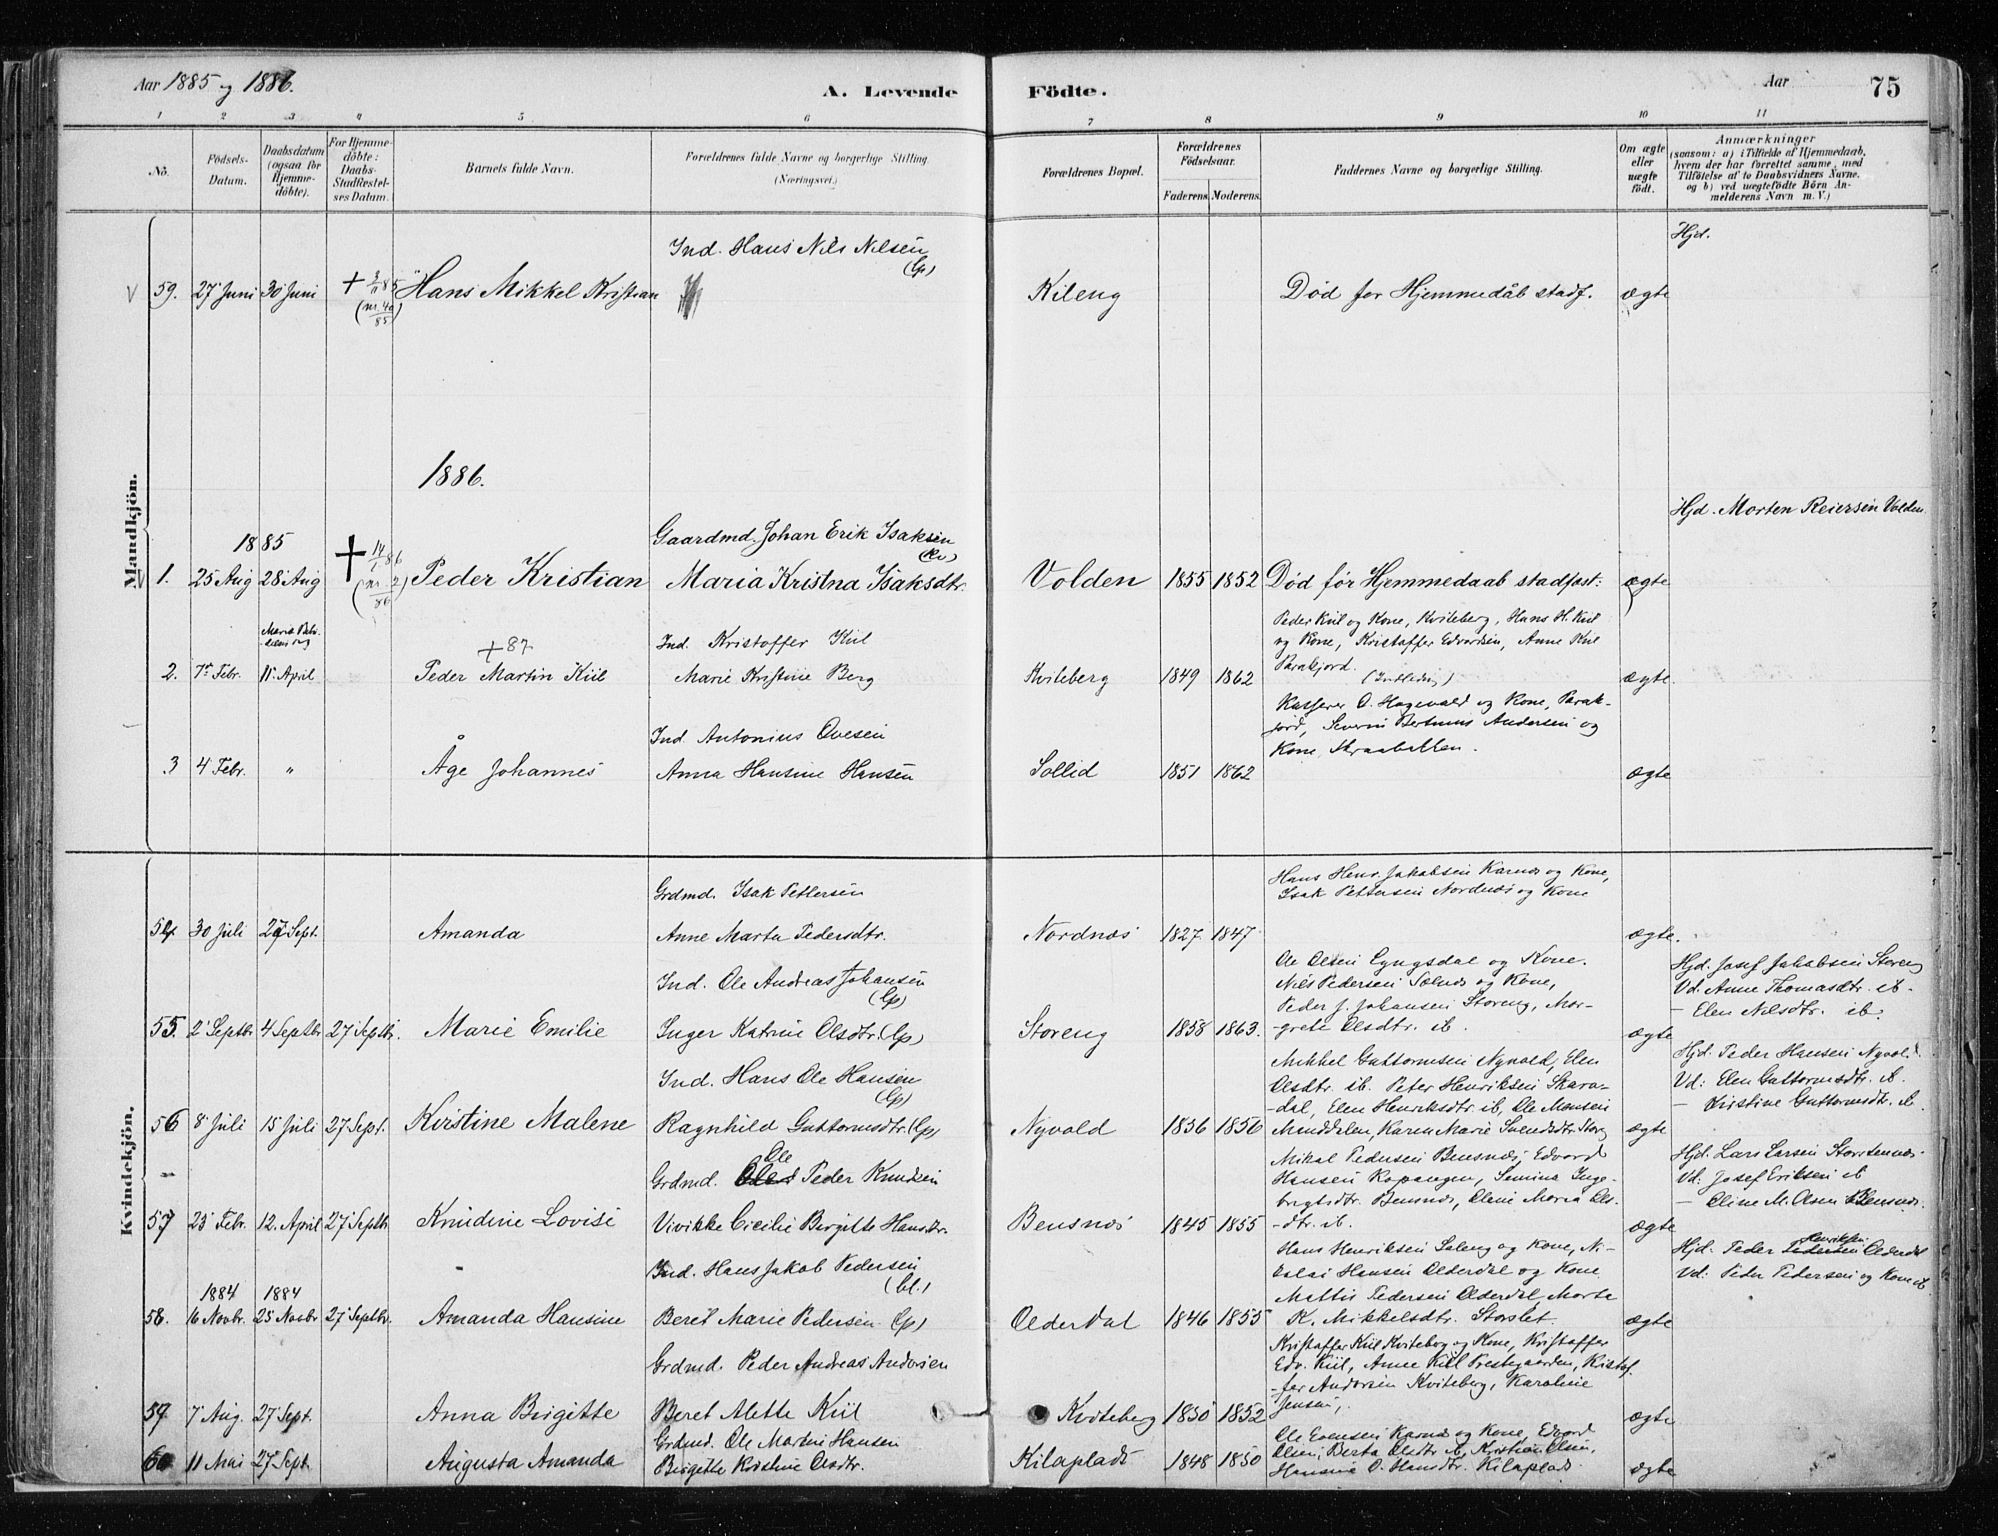 Aar 1885 og 1886.
A. Levende Födte.
Aar
75
1 2 3 4 5 6 7 8 9 10 11
No.
Födsels-Datum.
Daabsdatum (ogsaa for Hjemme-döbte).
For Hjemme-döbte: Daabs-Stadfæstel-ses Datum.
Barnets fulde Navn.
Forældrenes fulde Navne og borgerlige Stilling. (Næringsvei.)
Forældrenes Bopæl.
Forældrenes Födselsaar.
Faderens. Moderens.
Faddernes Navne og borgerlige Stilling.
Om ægte eller uægte födt.
Anmærkninger
(saasom: a) i Tilfælde af Hjemmedaab, hvem der har forrettet samme, med Tilföielse af to Daabsvidners Navne, og b) ved uægtefödte Börn An-melderens Navn m. V.)
Mandkjön.
Ind. Hans Nils Nilsen (Lp)
Hjd.
59. 27 Juni 30 Juni + 3/11 85 (nr. 40/85) Hans Mikkel Kristian Kileng Död för Hjemmedåb stadf. ægte
1886.
Hjd. Morten Reiersen Volden
1885
Gaardmd. Johan Erik Isaksen (Kv)
1. 25 Aug 28 Aug + 14/1 86 (nr. 2/86) Peder Kristian Maria Kristna Isaksdtr. Volden 1855 1852 Död før Hjemmedaab stadfæst: ægte
Peder Kiil og Kone, Kviteberg, Hans H. Kiil
+ 87 Ind. Kristoffer Kiil og Kone, Kristoffer Edvardsen, Anne Kiil
Parakjord.
2. 7de Febr. 11 April Peder Martin Kiil Marie Kristine Berg Kviteberg 1849 1862 ægte.
Kasserer O. Hagevald og Kone, Parak-
Ind. Antonius Ovesen jord, Severin Bertinus Andersen og
Kone
3 4 Febr. " Åge Johannes Anna Hansine Hansen Sollid 1851 1862 ægte
Kvindekjön.
Grdmd. Isak Pettersen Hans Henr. Jakobsen Karnes og Kone,
Isak Pettersen Nordnes og Kone
54 30 Juli 27 Sept. Amanda Anne Marta Pedersdtr. Nordnæs 1827 1847 ægte.
Ind. Ole Andreas Johansen (Lp) Ole Olsen Lyngsdal og Kone. Hjd. Josef Jakobsen Storeng
Nils Pedersen Solnes og Kone, Vd. Anne Thomasdtr. ib.
Peder J. Johansen Storeng, Mar- — Elen Nilsdtr. ib.
55. 2 Septbr 4 Septbr 27 Septbr. Marie Emilie Inger Katrine Olsdtr. (Lp) Storeng 1858 1863. -grete Olsdtr. ib. ægte
Ind. Hans Ole Hansen (Lp) Mikkel Guttormsen Nyvold, Elen Hjd. Peder Hansen Nyvold
Olsdtr. ib. Peter Henriksen Skara- Vd: Elen Guttormsdtr. ib.
-dal, Elen Henriksdtr. ib, Ole Monsen — Kirstine Guttormsdtr. ib.
56 8 Juli 15 Juli 27 Sept. Kirstine Malene Ragnhild Guttormsdtr. (Lp) Nyvold 1836 1856 Manddalen, Karen Marie Svendsdtr. ægte
Grdmd. Ole Peder Knudsen Mikal Pedersen Bensnæs, Edvard Hjd. Lars Larsen Storstennes
Hansen Kopangen, Semina Inge- Vd: Josef Eriksen ib
brigtsdtr. Bensnæs, Oline Maria Ols- — Oline M. Olsen Bensnæs.
57 25 Febr. 12. April 27 Septbr. Knudine Lovise Vivikke Cicilie Birgitte Hansdtr. Bensnæs 1845 1855 -dtr. ib. ægte
Ind. Hans Jakob Pedersen Hans Henriksen Soleng og Kone, Ni- Hjd. Peder Henriksen Olderdal
kolai Hansen Olderdal og Kone Vd: Peder Pedersen og Kone ib
1884 1884 Mattis Pedersen Olderdal Marte
58. 16 Novbr. 25 Novbr 27 Septbr. Amanda Hansine Beret Marie Pedersen (Lp) Olderdal 1846 1855 K. Mikkelsdtr. Storslet. ægte
Grdmd. Peder Andreas Andersen Kristaffer Kiil Kviteberg og Kone, Kristaffer
Edv. Kiil, Anne Kiil Prestegaarden, Kristaf-
-fer Andersen Kviteberg, Karoline
59 7 Aug. 27 Sept. Anna Birgitte Beret Alette Kiil Kviteberg 1850 1852 Jensen, ægte
Grdmd. Ole Martin Hansen Ole Evensen Karnes og Kone, Edvard
60 11 Mai 27 Sept Augusta Amanda Birgitte Kristine Olsdtr. Kilaplads 1848 1850 Olsen, Berta Olsdtr. ib, Kristian Olsen,
Hansine O. Hansdtr. Kilaplads ægte